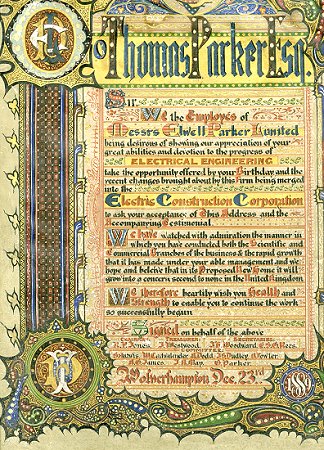 To
Thomas Parker Esq.
Sir
We the Employes of
Messrs Elwell Parker Limited
being desirous of showing our appreciation of your
great abilities and devotion to the progress of
ELECTRICAL ENGINEERING
take the opportunity offered by your Birthday and the
recent changes brought about by this Firm being merged
into the
Electric Construction Corporation
to ask your acceptance of this Address and the
Accompanying Testimonial
We have watched with admiration the manner in
which you have conducted both the Scientific and
Commercial Branches of the business & the rapid growth
that it has made under your able management and we
hope and beleive that in its Proposed New Home it will
grow into a concern second to none in the United Kingdom
We therefore heartily wish you Health and
Strength to enable you to continue the work
so successfully begun
Signed on behalf of the above
Treasurer
Jones Westwood Woodward Rees
Dodd Dudley Fowler
James May Parker
Wolverhampton Dec. 23rd
1889